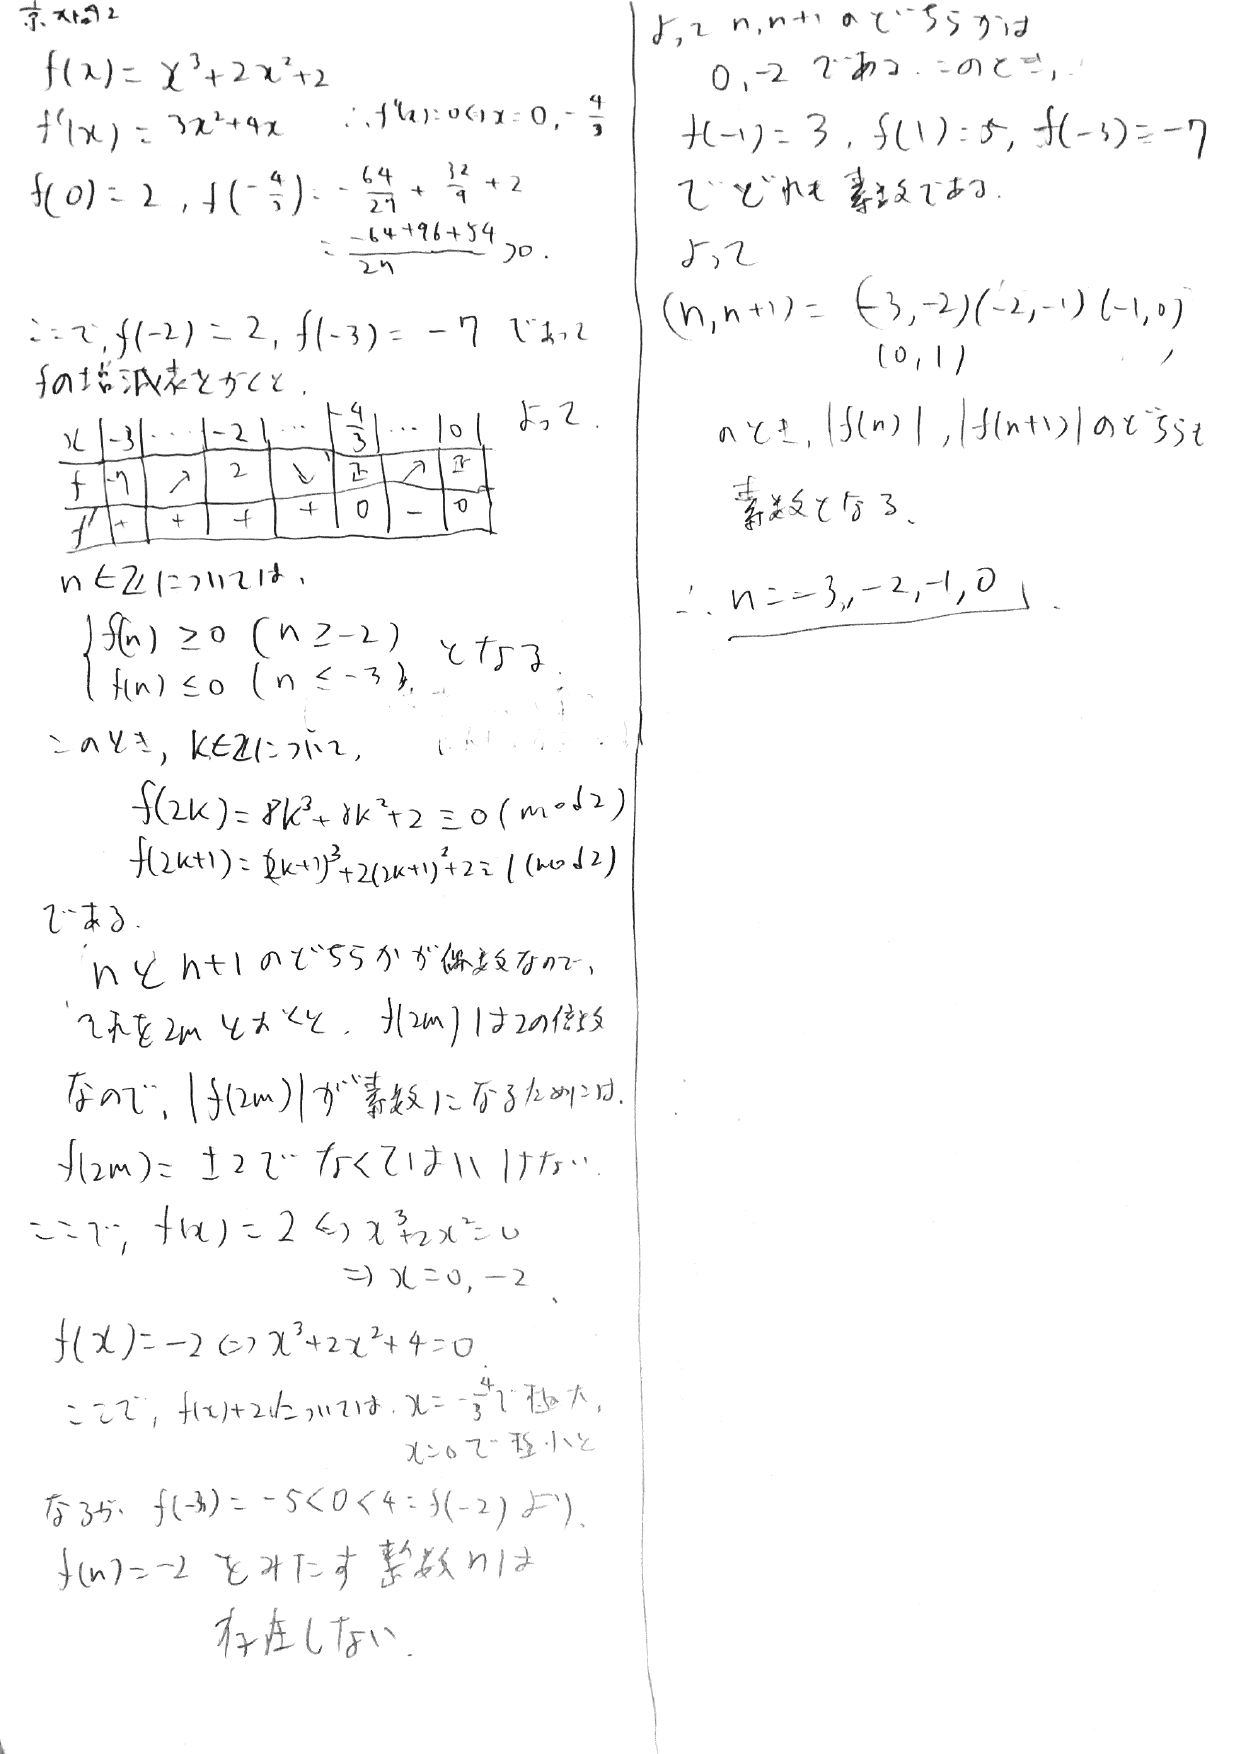 f(x) = x³+2x²+2
f'(x) = 3x²+4x ∴ f'(x)=0⇔x=0, -4/3
f(0)=2, f(-4/3) = -64/27 + 32/9 + 2
= (-64+96+54)/27 >0.
ここで, f(-2) = 2, f(-3) = -7 であって
fの増減表をかくと,
x | -3 | … | -2 | … | -4/3 | … | 0 よって
f | -7 | ↗ | 2 | ↘ | 正 | ↗ | 正
f' | + | + | + | + | 0 | - | 0
n∈ℤについては,
f(n) ≥0 (n≥-2)
f(n) ≤0 (n≤-3) となる.
このとき, k∈ℤについて,
f(2k)=8k³+8k²+2≡0 (mod2)
f(2k+1)=(2k+1)³+2(2k+1)²+2≡1 (mod2)
である.
nとn+1のどちらかが偶数なので,
それを2mとおくと, f(2m)は2の倍数
なので, |f(2m)|が素数になるためには,
f(2m)= ±2で なくてはいけない.
ここで, f(x) = 2 ⇔ x³+2x²=0
⇒ x=0, -2
f(x)=-2⇔x³+2x²+4=0
ここで, f(x)+2については, x=-4/3で極大,
x=0で極小と
なるから, f(-3)=-5<0<4=f(-2)より,
f(n)=-2 をみたす 整数nは
存在しない.
よって n, n+1 のどちらかは
0, -2 である. このとき,
f(-1)=3, f(1)=5, f(-3)=-7
でどれも 素数である.
よって
(n, n+1) = (-3,-2) (-2,-1) (-1,0)
(0,1)
のとき, |f(n)|, |f(n+1)|のどちらも
素数となる.
∴ n=-3, -2, -1, 0